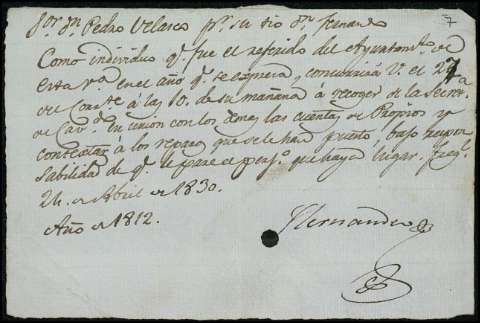 7
Sor. Dn. Pedro Velasco pr. su tio Dn. Fernando
Como individuo q. fue el referido del Ayuntamto. de
esta va. en el año q. se expresa, concurrirá V. el 27
de corte. á las 10. de su mañana á recoger de la Secreta.
de Cavdo. en union con los demas las cuentas de Propios y
contestar á los reparos que se le han puesto, bajo respon
sabilidad de q. le pare el perjo. que haya lugar.
24. de Abril de 1830.
Año de 1812.
Hernandez